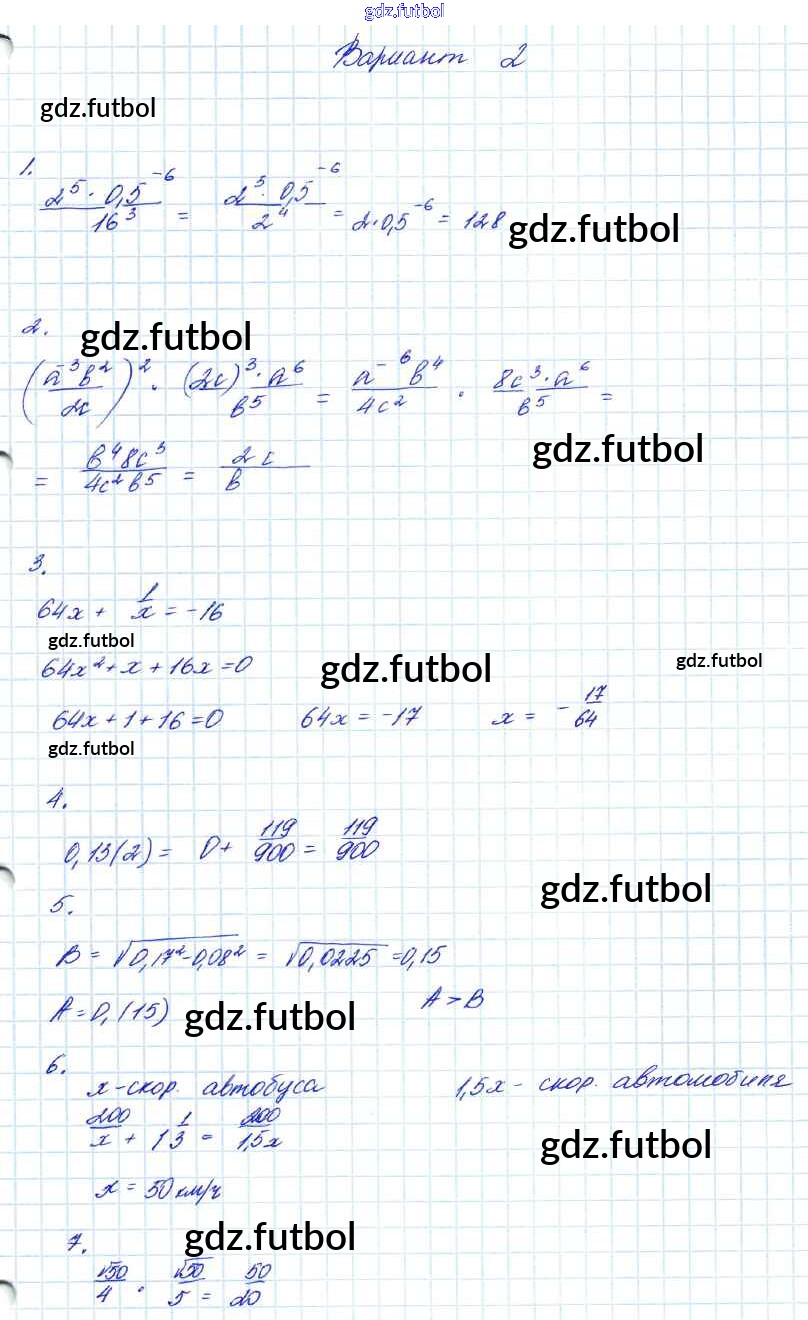 gdz.futbol
Вариант 2
gdz.futbol
1.
2⁵ · 0,5⁻⁶ / 16³ = 2⁵ · 0,5⁻⁶ / 2⁴ = 2·0,5⁻⁶ = 128 gdz.futbol
2. gdz.futbol
(a⁻³b² / 2c)² · (2c)³ · a⁶ / b⁵ = a⁻⁶b⁴ / 4c² · 8c³ · a⁶ / b⁵ =
gdz.futbol
= b⁴8c³ / 4c²b⁵ = 2c / b
3.
64x + 1/x = -16
gdz.futbol
64x² + x + 16x = 0 gdz.futbol gdz.futbol
64x + 1 + 16 = 0 64x = -17 x = - 17/64
gdz.futbol
4.
0,13(2) = 0 + 119/900 = 119/900
gdz.futbol
5.
B = √0,17² - 0,08² = √0,0225 = 0,15
A = 0,(15) gdz.futbol A > B
6.
x - скор. автобуса 1,5x - скор. автомобиля
200/x + 1 1/3 = 200/1,5x
gdz.futbol
x = 50 км/ч
7. gdz.futbol
√50/4 · √50/5 = 50/20